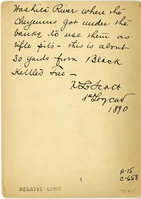 Washita River where the
Cheyennes got under the
banks to use them as
rifle pits - this is about
30 yards from Black
Kettles Tree -
H L Scott
7th Cav
1890
A-15
C-658
NEGATIVE